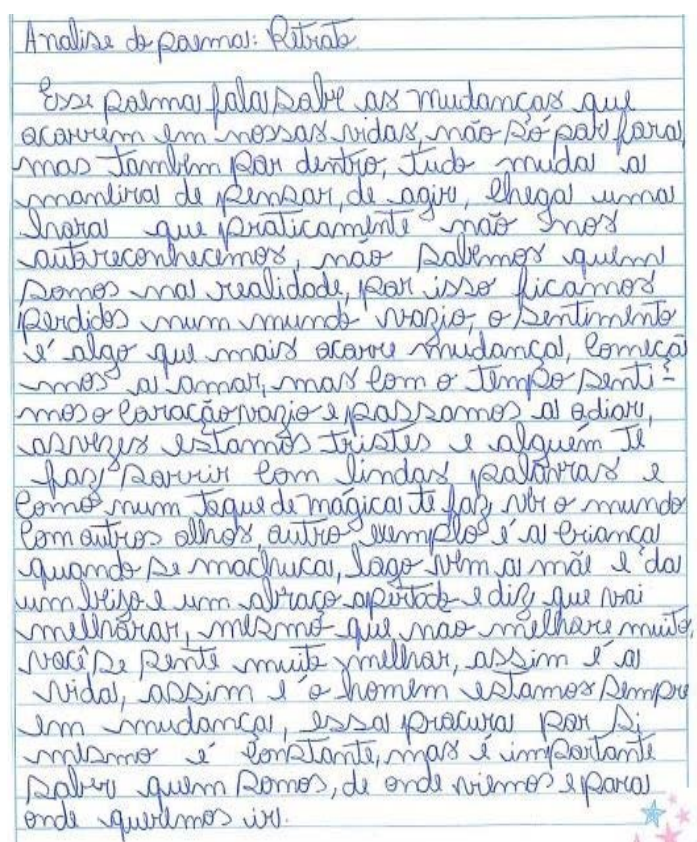 Analise do poema: Retrato.
Esse poema fala sobre as mudanças que
ocorrem em nossas vidas, não só por fora,
mas também por dentro, tudo muda a
maneira de pensar, de agir, chega uma
hora que praticamente não nos
autoreconhecemos, não sabemos quem
somos na realidade, por isso ficamos
perdidos num mundo vazio, o sentimento
é algo que mais ocorre mudança, começa
mos a amar, mas com o tempo senti-
mos o coração vazio e passamos a odiar,
as vezes estamos tristes e alguém te
faz sorrir com lindas palavras e
como num toque de mágica te faz ver o mundo
com outros olhos, outro exemplo é a criança
quando se machuca, logo vem a mãe e da
um beijo e um abraço apertado e diz que vai
melhorar, mesmo que nao melhore muito,
você se sente muito melhor, assim é a
vida, assim é o homem estamos sempre
em mudança, essa procura por si
mesmo é constante, mas é importante
saber quem somos, de onde viemos e para
onde queremos ir.